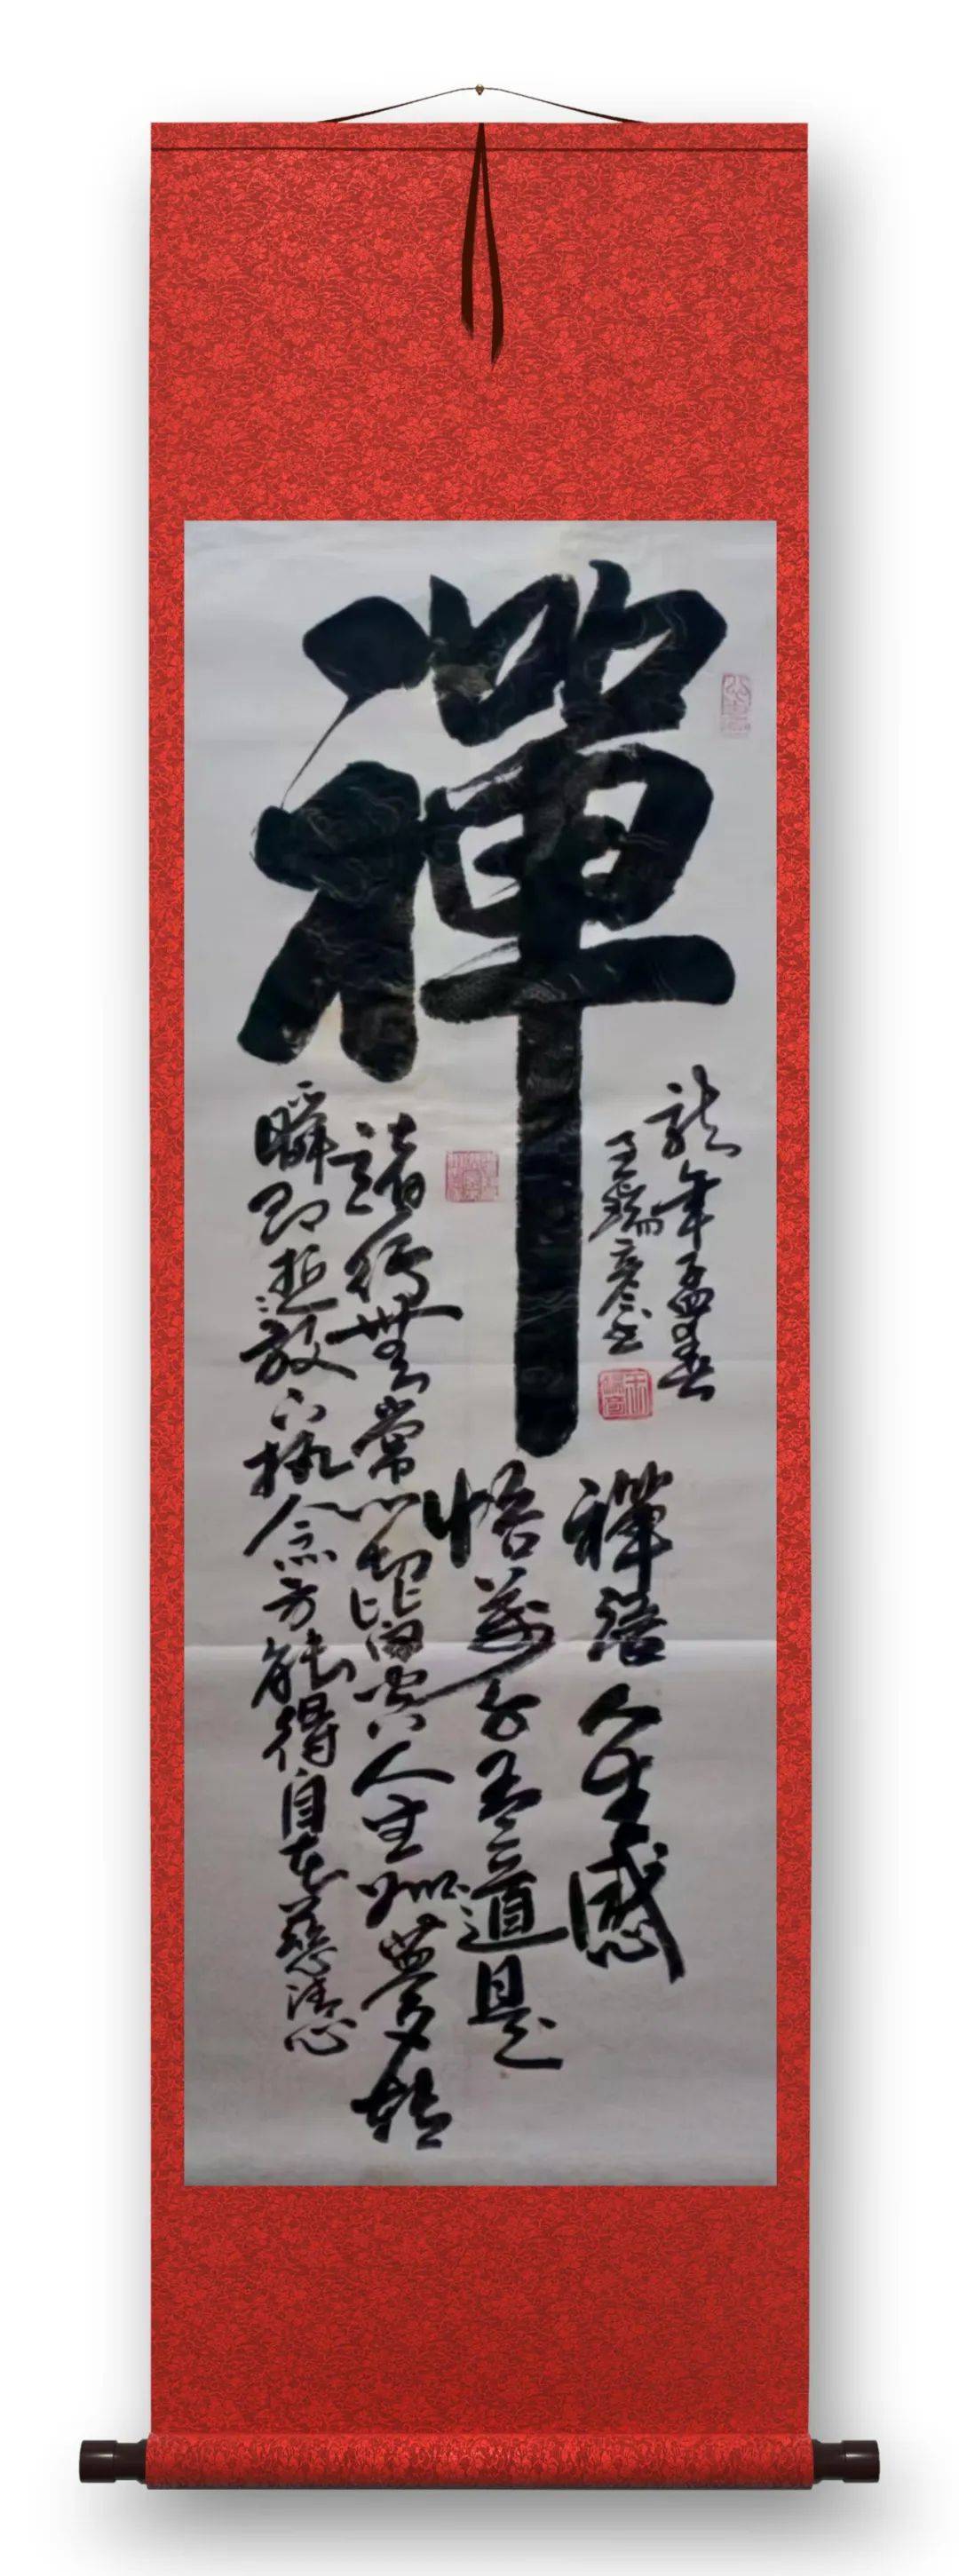 禪
龍年孟春
王瑞彥书
禪語人生感
悟萬道是
諸行無常一切皆空人生如夢轉
瞬即逝放下執念方能得自在慈清心